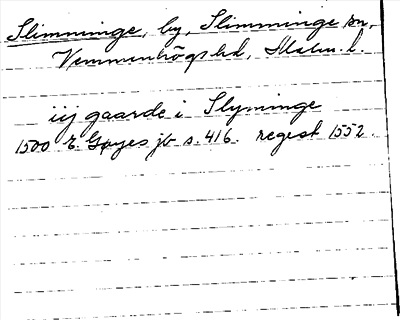 Slimminge, by, Slimminge sn,
Vemmenhögs hd, Malm. l.
iij gaarde i Slyminge
1500 E. Gøyes jb s. 416. regest 1552.